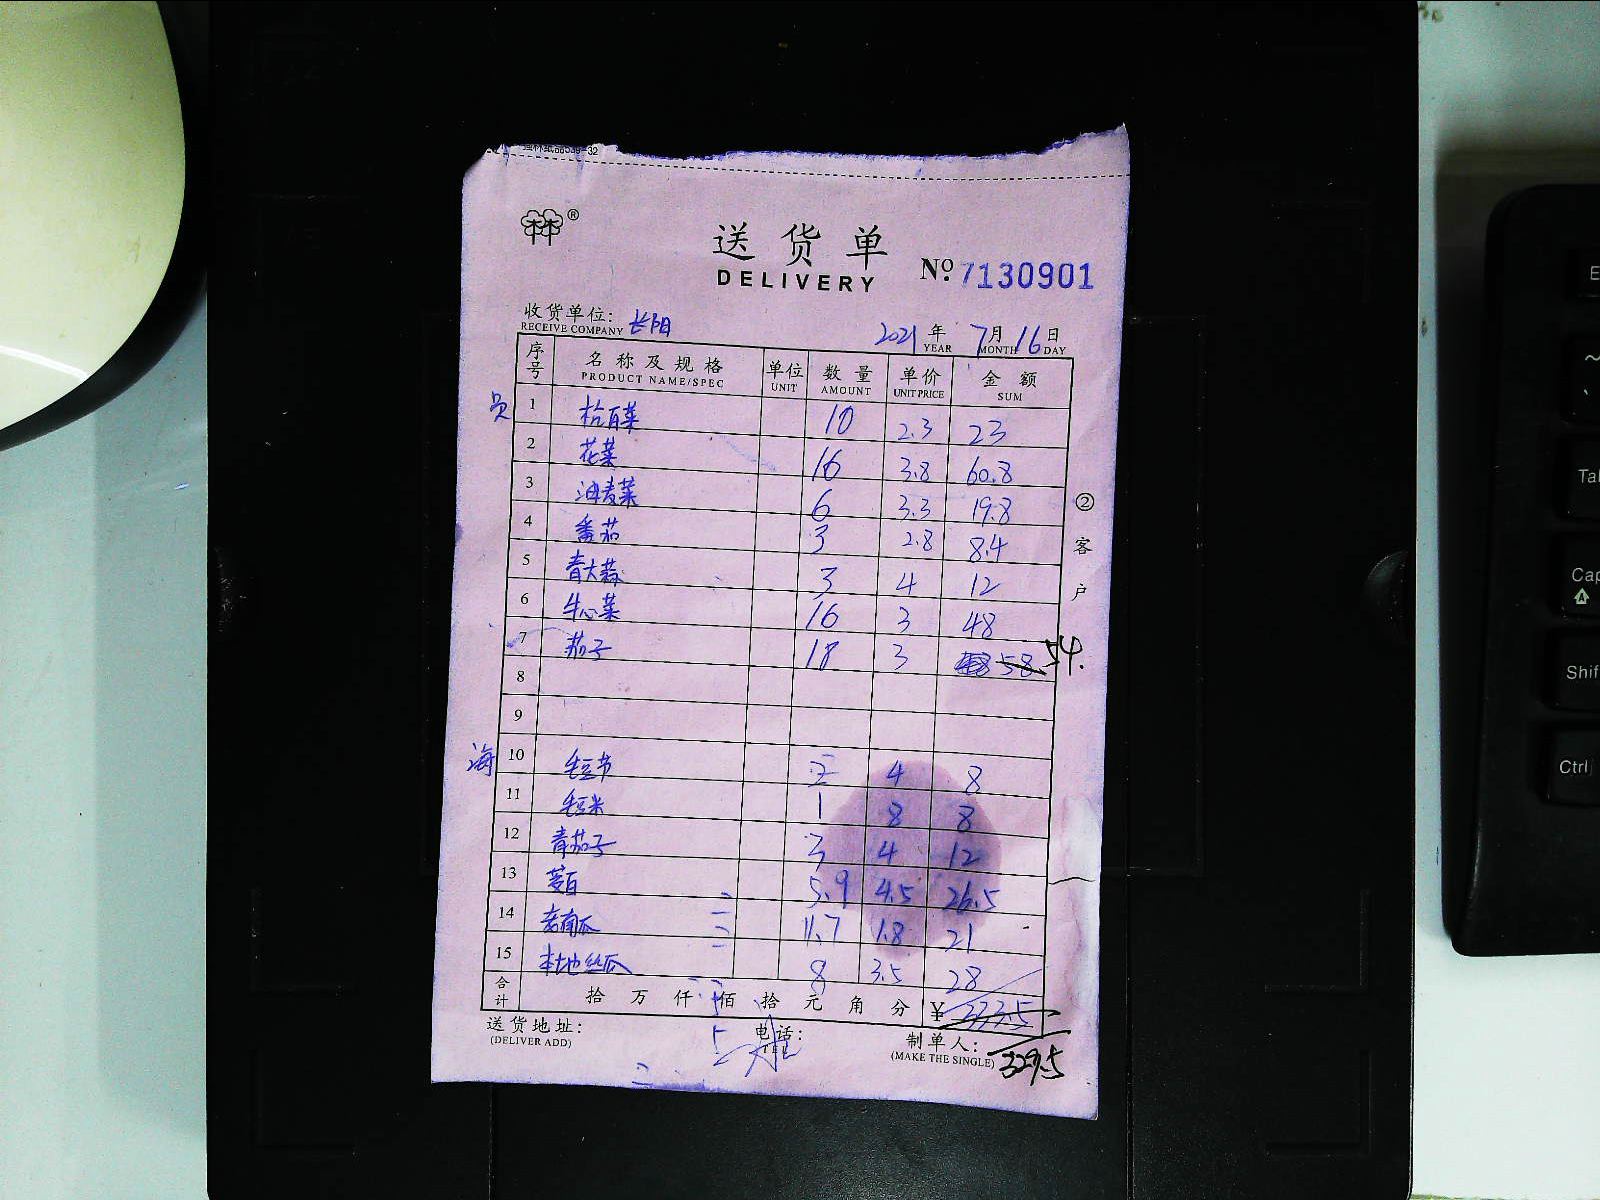 送货单
DELIVERY
№ 7130901
收货单位: 长阳
RECEIVE COMPANY
2021 年 7 月 16 日
YEAR MONTH DAY
序号 名称及规格 单位 数量 单价 金额
PRODUCT NAME/SPEC UNIT AMOUNT UNIT PRICE SUM
员 1 杭百菜 10 2.3 23
2 花菜 16 3.8 60.8
3 油麦菜 6 3.3 19.8
4 番茄 3 2.8 8.4
5 青大蒜 3 4 12
6 牛心菜 16 3 48
7 茄子 18 3 58 54.
8
9
海 10 毛豆节 2 4 8
11 毛豆米 1 8 8
12 青茄子 3 4 12
13 茭白 5.9 4.5 26.5
14 老南瓜 11.7 1.8 21
15 本地丝瓜 8 3.5 28
合计 拾 万 仟 佰 拾 元 角 分 ¥ 333.5
送货地址: 电话: 制单人:
(DELIVER ADD) TEL (MAKE THE SINGLE) 329.5
② 客户
E
Tab
Cap
Shif
Ctrl